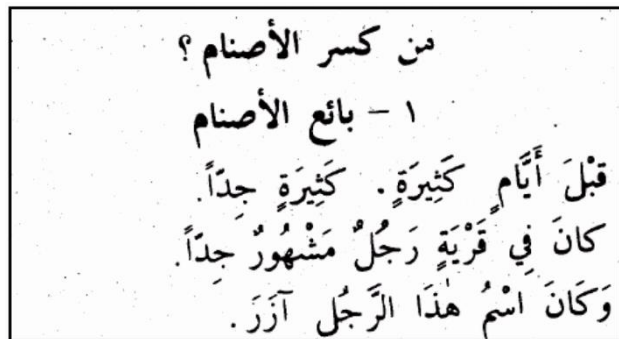 من كسر الأصنام ؟
١ - بائع الأصنام
قَبْلَ أَيَّامٍ كَثِيرَةٍ . كَثِيرَةٍ جِدّاً.
كانَ فِي قَرْيَةٍ رَجُلٌ مَشْهُورٌ جِدّاً.
وَكَانَ اسْمُ هٰذَا الرَّجُلِ آزَرَ .